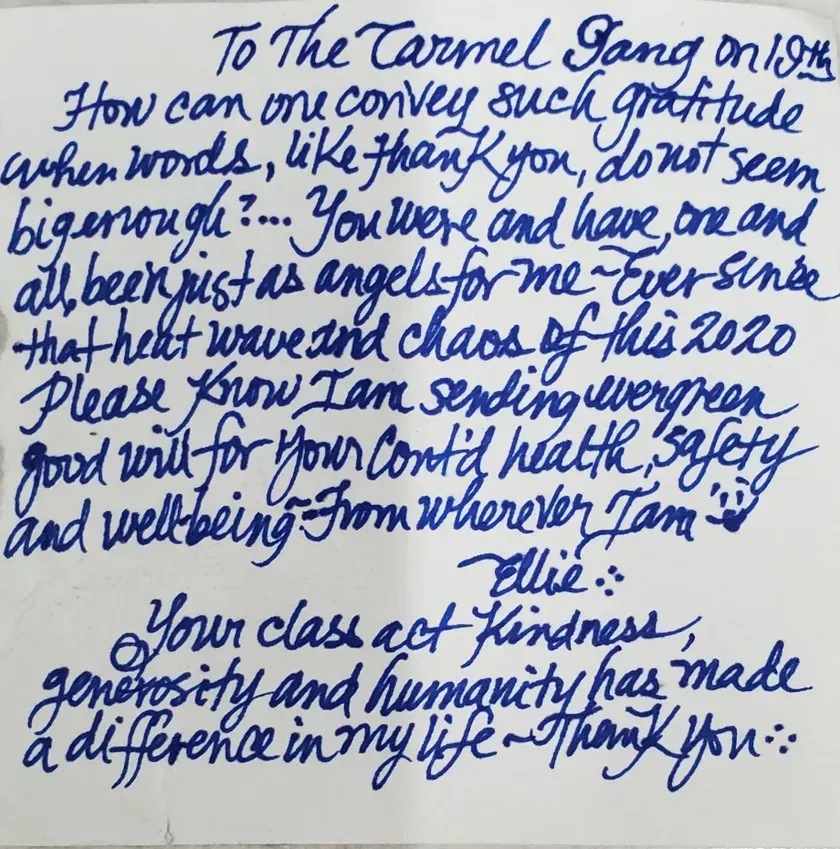 To The Carmel Gang on 19th
How can one convey such gratitude
when words, like thank you, do not seem
big enough?... You were and have, one and
all, been just as angels for me ~ Ever since
that heat wave and chaos of this 2020
Please Know I am sending evergreen
good will for Your Cont'd health, safety
and well-being ~ From wherever I am
Ellie
Your class act Kindness,
generosity and humanity has made
a difference in my life ~ Thank You